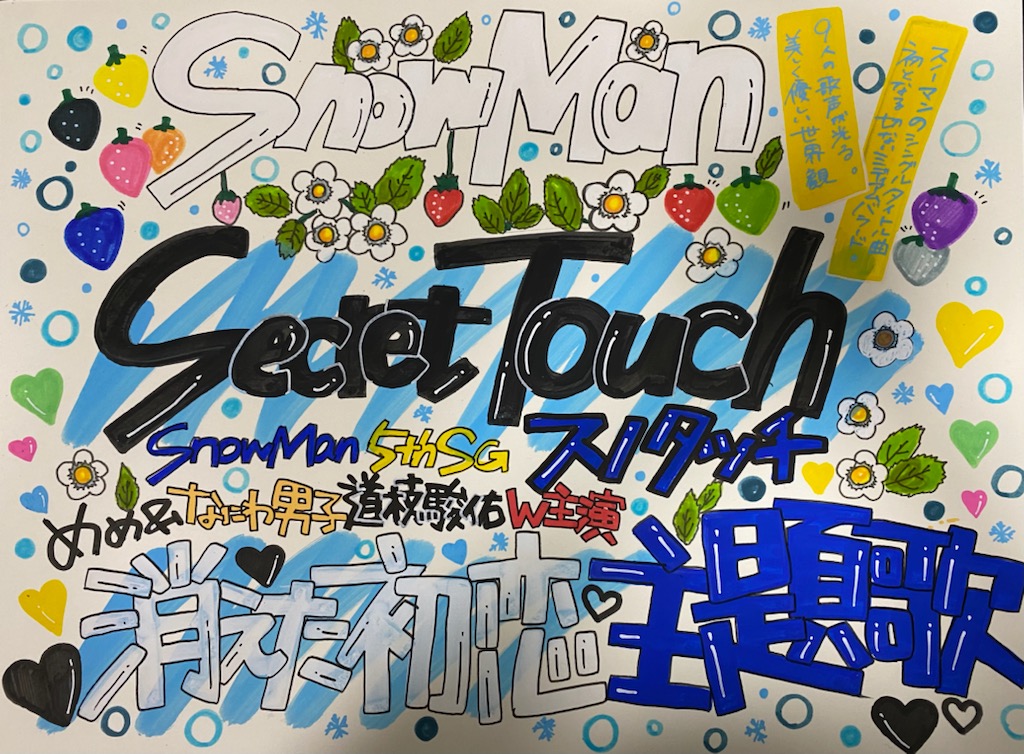 Snow Man
スノーマンのシングルタイトル曲
初となる切ないミディアムバラード。
9人の歌声が光る。
美しく優しい世界観
Secret Touch
SnowMan 5thSG スノタッチ
めめ&なにわ男子道枝駿佑W主演
消えた初恋主題歌